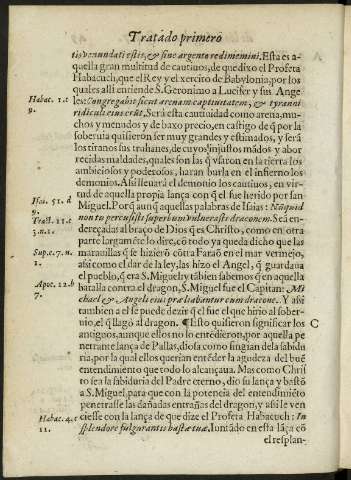 Tratado primero
tis venundati estis, & sine argento redimemini. Esta es a-
quella gran multitud de cautiuos, de que dixo el Profeta
Habacuch, que el Rey y exercito de Babylonia, por los
quales alli entiende S. Geronimo a Lucifer y sus Ange
Habac. 1. c
9.
les: Congregabit sicut arenam captiuitatem, & tyranni
ridiculi eius erũt. Será esta cautiuidad como arena, mu-
chos y menudos y de baxo precio, en castigo de q̃ por la
soberuia quisierõ ser muy grandes y estimados, y serà
los tiranos sus trahanes, de cuyos injustos mãdos y abor
recidas maldades, quales son las q̃ vsaron en la tierra los
ambiciosos y poderosos, haran burla en el infierno los
demonios. Assi lleuará el demonio los cautiuos, en vir-
tud de aquella propia lança con q̃ el fue herido por san
Isai. 51. d
9.
Miguel. Porq̃ aunq̃ aquellas palabras de Isaias: Nũquid
non tu percussisti superbum vulnerasti draconem. Seã en-
Tract. 11. c
3. n. 1.
dereçadas al braço de Dios q̃ es Christo, como en otra
parte largamẽte lo dire, cõ todo ya queda dicho que las
Sup. c. 7. n.
1.
marauillas q̃ se huzierõ cõtra Faraõ en el mar vermejo,
assi como el dar de la ley, las hizo el Angel, q̃ guardaua
el pueblo, q̃ era S. Miguel y tãbien sabemos q̃ en aquella
Apoc. 12. b
7.
batalla contra el dragon, S. Miguel fue el Capitan: Mi
chael & Angeli eius præliabantur cum dracone. Y assi
tambien a el se puede dezir q̃ el fue el que hirio al sober-
uio, el q̃ llagó al dragon. ¶ Esto quisieron significar los
C
antiguos, aunque ellos no lo entẽdieron, por aquella pe
netrante lança de Pallas, diosa como fingian de la sabidu
ria, por la qual ellos querian entẽder la agudeza del buẽ
entendimiento que todo lo alcançaua. Mas como Chris
to sea la sabiduria del Padre eterno, dio su lança y bastõ
a S. Miguel, para que con la potencia del entendimiẽto
penetrasse las dañadas entrañas del dragon, y assi le ven
ciesse con la lança de que dize el Profeta Habacuch: In
Habac. 4. c
11.
splendore fulgurantis hastæ tuæ. Iuntãdo en esta lãça cõ
el resplan-